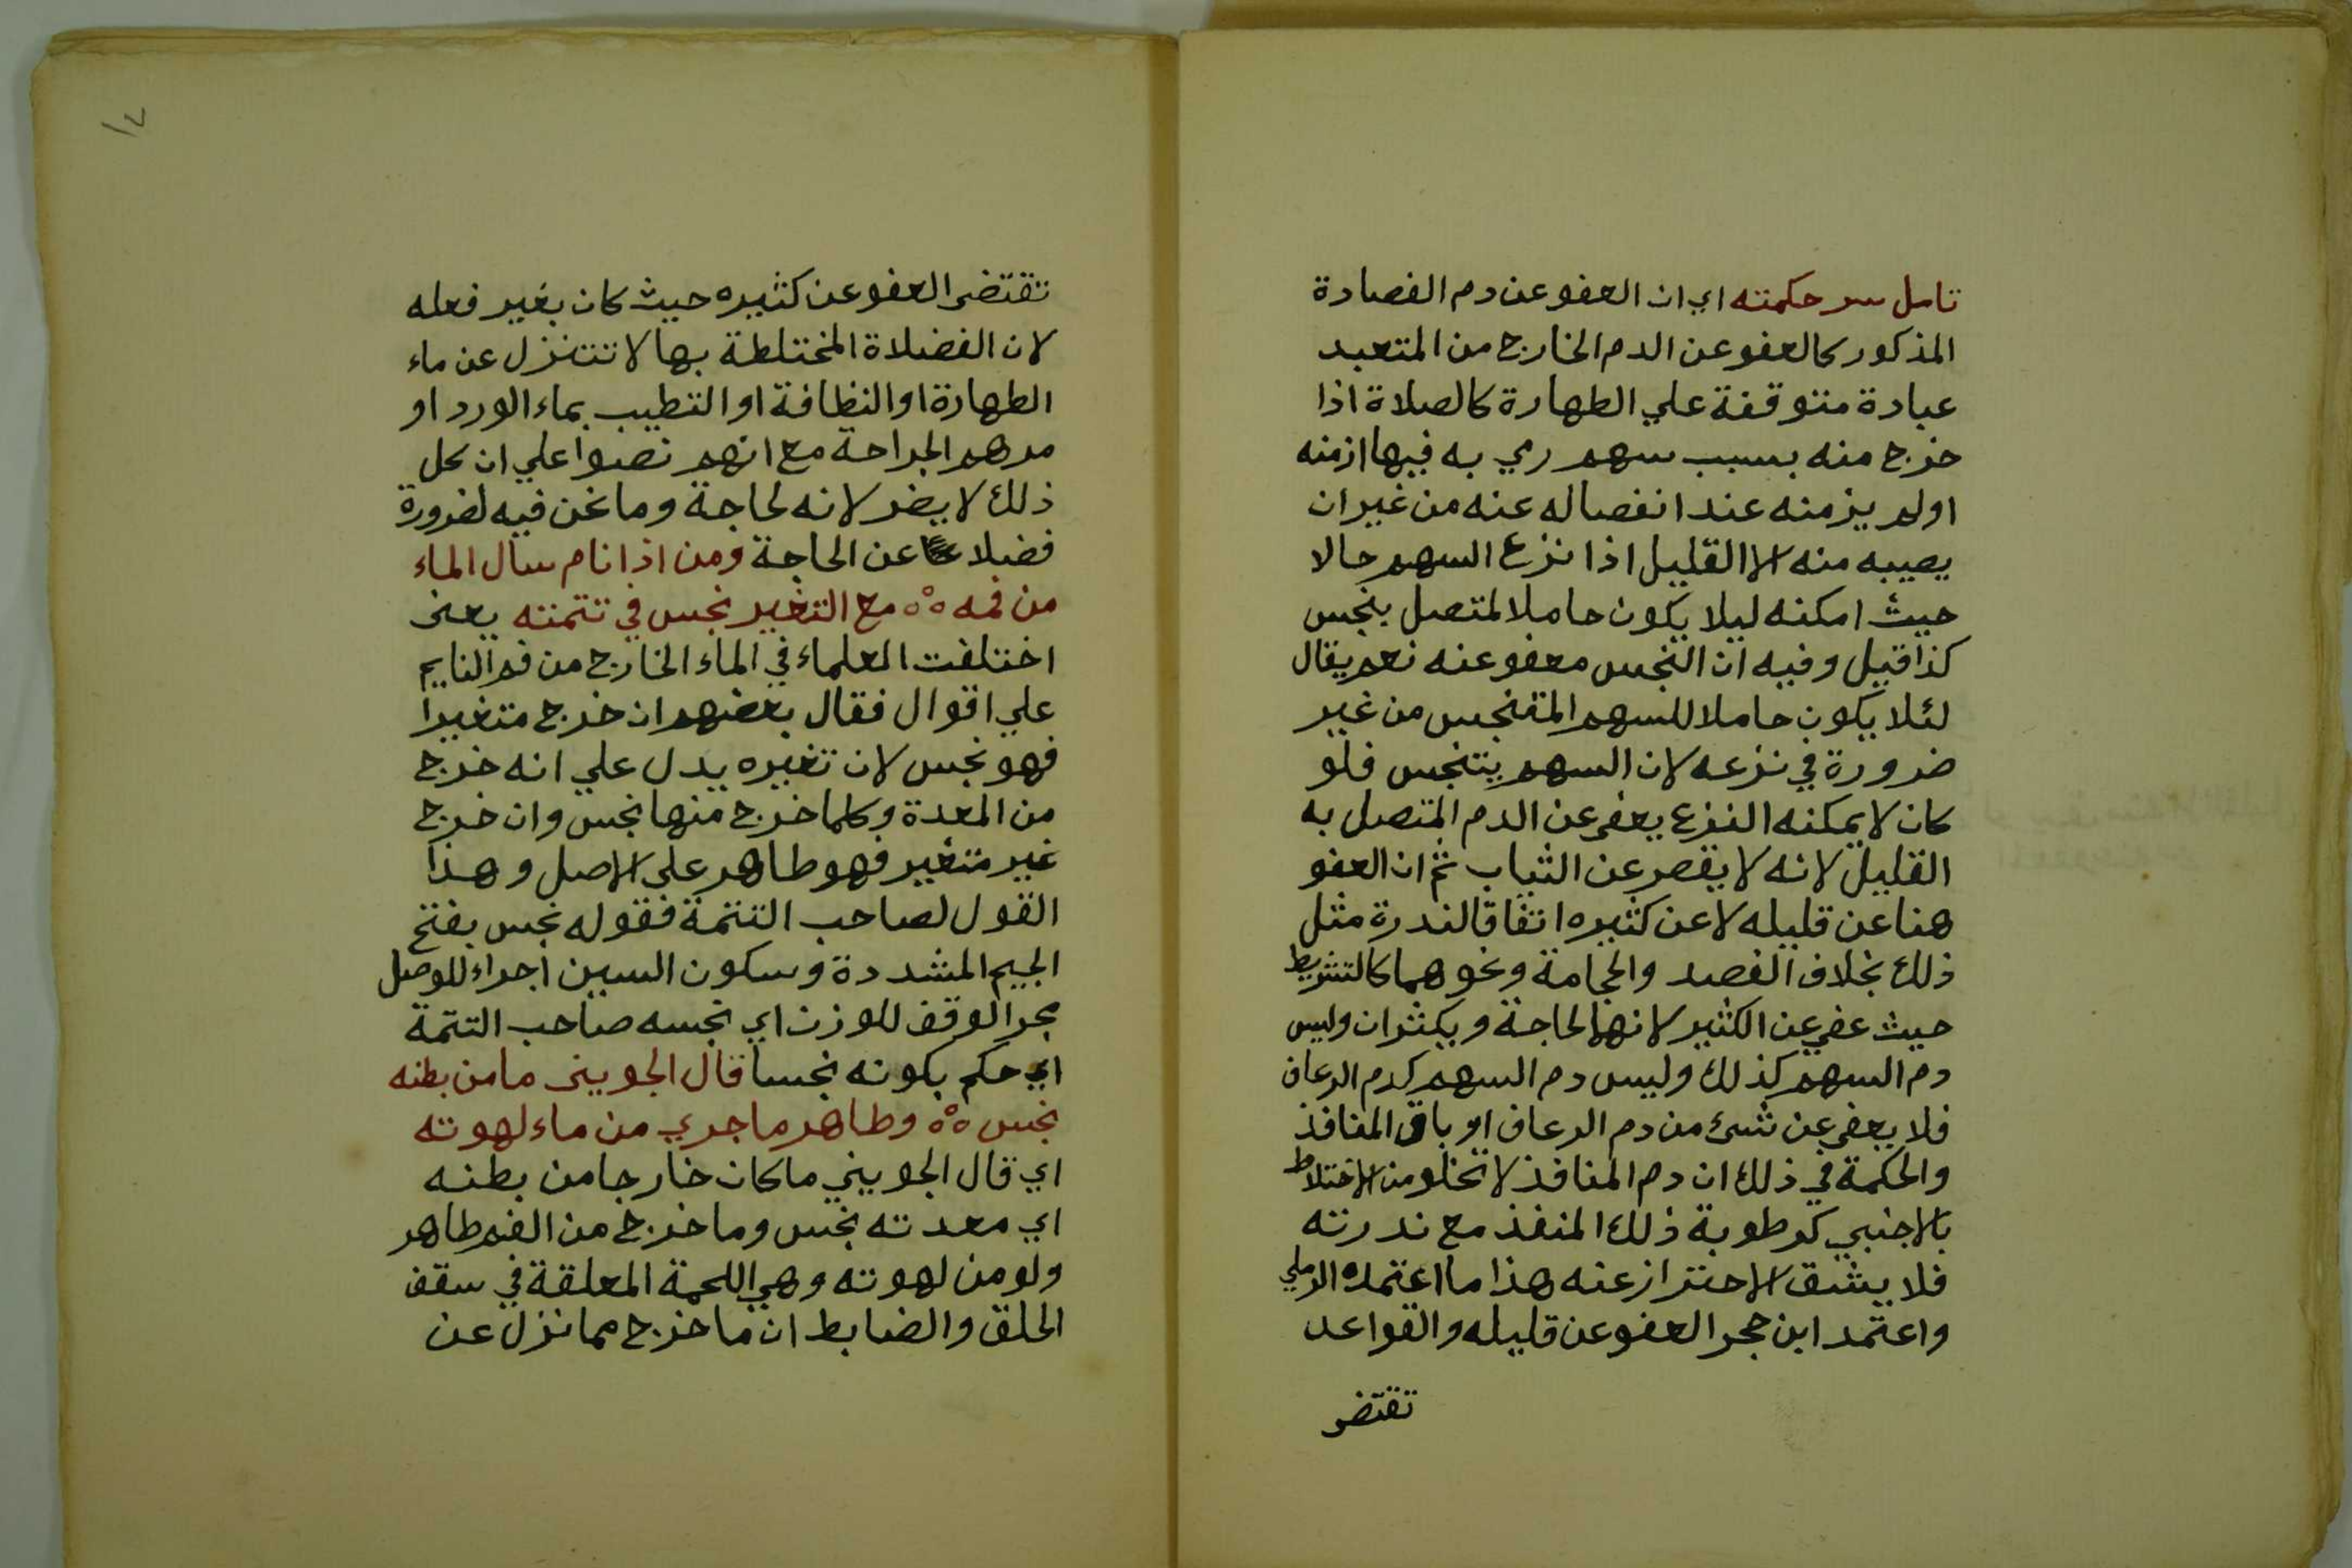 تامل سر حكمته اي ان العفو عن دم الفصادة
المذكور كالعفو عن الدم الخارج من المتعبد
عبادة متوقفة علي الطهارة كالصلاة اذا
خرج منه بسبب سهم رمي به فيها ازمنه
اولم يزمنه عند انفصاله عنه من غير ان
يصيبه منه الا القليل اذا نزع السهم حالا
حيث امكنه ليلا يكون حاملا لمتصل بنجس
كذا قيل وفيه ان النجس معفو عنه نعم يقال
لئلا يكون حاملا للسهم المتنجس من غير
ضرورة في نزعه لان السهم يتنجس فلو
كان لا يمكنه النزع يعفي عن الدم المتصل به
القليل لانه لا يقصر عن الثياب ثم ان العفو
هنا عن قليله لا عن كثيره اتفاقا لندرة مثل
ذلك بخلاف الفصد والحجامة ونحوهما كالتشريط
حيث عفي عن الكثير لانها لحاجة ويكثران وليس
دم السهم كذلك وليس دم السهم كدم الرعاف
فلا يعفي عن شئ من دم الرعاف او باقي المنافذ
والحكمة في ذلك ان دم المنافذ لا تخلو من الاختلاط
بالاجنبي كرطوبة ذلك المنفذ مع ندرته
فلا يشق الاحتراز عنه هذا ما اعتمده الرملي
واعتمد ابن حجر العفو عن قليله والقواعد
تقتضي
١٧
تقتضي العفو عن كثيره حيث كان بغير فعله
لان الفضلاة المختلطة بها لا تتنزل عن ماء
الطهارة او النظافة او التطيب بماء الورد او
مرهم الجراحة مع انهم نصوا علي ان كل
ذلك لا يضر لانه لحاجة وما نحن فيه لضرورة
فضلا عن الحاجة ومن اذا نام سال الماء
من فمه ٥٥ مع التغير نجس في تتمته يعني
اختلفت العلماء في الماء الخارج من فم النايم
علي اقوال فقال بعضهم ان خرج متغيرا
فهو نجس لان تغيره يدل علي انه خرج
من المعدة وكلما خرج منها نجس وان خرج
غير متغير فهو طاهر علي الاصل وهذا
القول لصاحب التتمة فقوله نجس بفتح
الجيم المشددة وسكون السين اجراء للوصل
مجر الوقف للوزن اي نجسه صاحب التتمة
اي حكم بكونه نجسا قال الجويني ما من بطنه
نجس ٥٥ وطاهر ما جري من ماء لهوته
اي قال الجويني ما كان خارجا من بطنه
اي معدته نجس وما خرج من الفم طاهر
ولو من لهوته وهي اللحمة المعلقة في سقف
الحلق والضابط ان ما خرج مما نزل عن